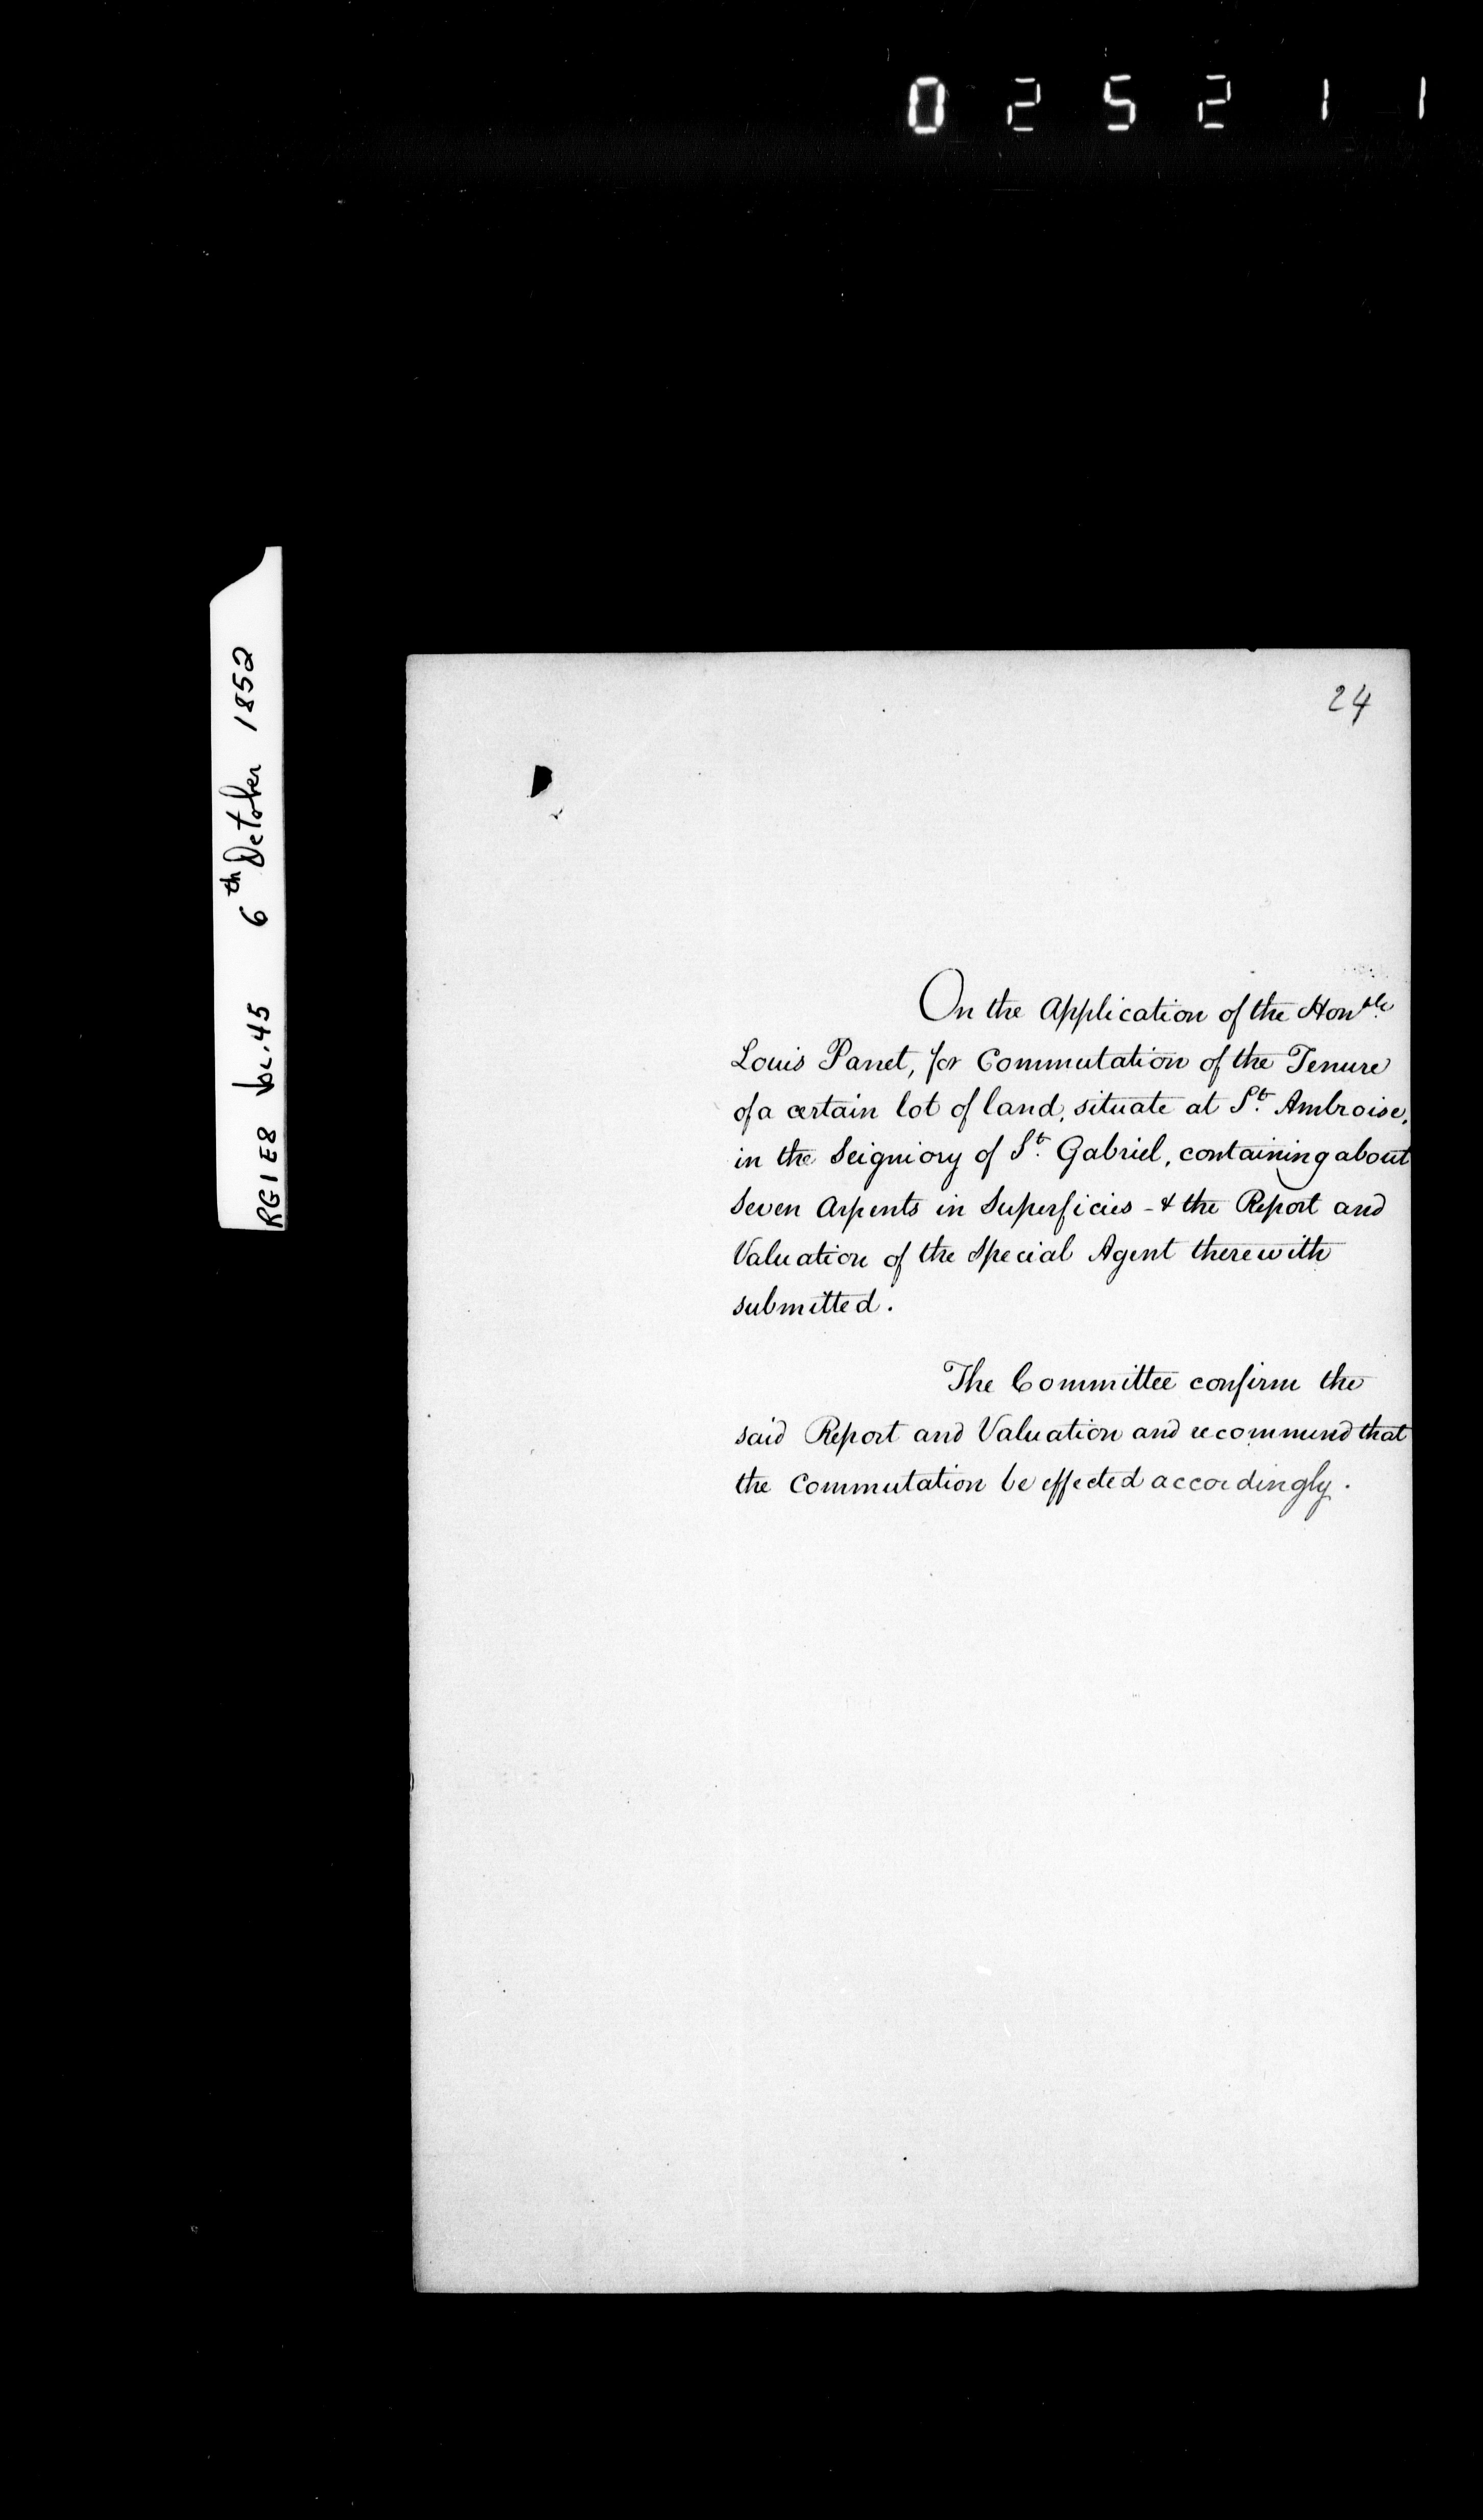 025211
RG1E8 Vol.45 6th October 1852
24
On the Application of the Honble.
Louis Panet, for Commutation of the Tenure
of a certain lot of land, situate at St. Ambroise,
in the Seigniory of St. Gabriel, containing about
Seven Arpents in Superficies - & the Report and
Valuation of the Special Agent therewith
submitted.
The Committee confirm the
said Report and Valuation and recommend that
the Commutation be effected accordingly.